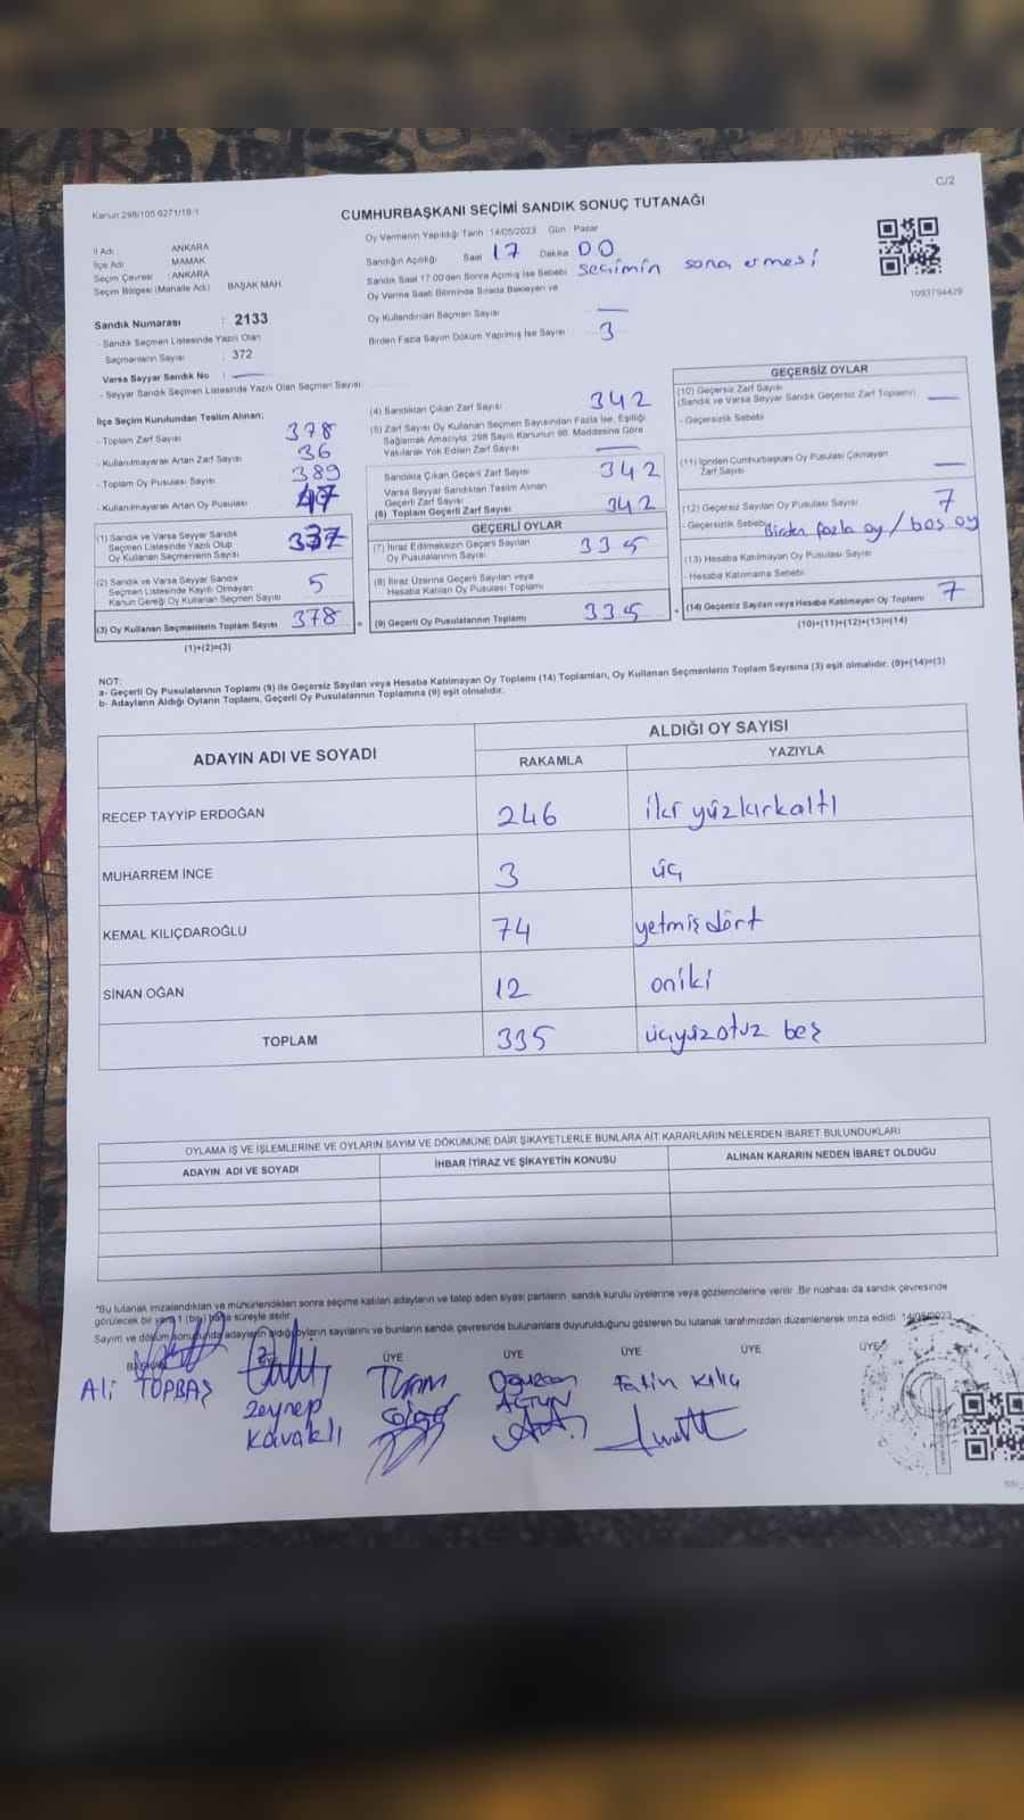 C/2
Kanun 298/105 6271/19/1
CUMHURBAŞKANI SEÇİMİ SANDIK SONUÇ TUTANAĞI
İl Adı : ANKARA
İlçe Adı : MAMAK
Seçim Çevresi : ANKARA
Seçim Bölgesi (Mahalle Adı) BAŞAK MAH.
Oy Vermenin Yapıldığı Tarih : 14/05/2023 Gün : Pazar
Sandığın Açıldığı Saat 17 Dakika 00
Sandık Saat 17:00'den Sonra Açılmış İse Sebebi seçimin sona ermesi
Oy Verme Saati Bitiminde Sırada Bekleyen ve
Oy Kullandırılan Seçmen Sayısı —
Birden Fazla Sayım Döküm Yapılmış İse Sayısı 3
1093794429
Sandık Numarası : 2133
- Sandık Seçmen Listesinde Yazılı Olan
Seçmenlerin Sayısı : 372
Varsa Seyyar Sandık No : —
- Seyyar Sandık Seçmen Listesinde Yazılı Olan Seçmen Sayısı
İlçe Seçim Kurulundan Teslim Alınan;
- Toplam Zarf Sayısı 378
- Kullanılmayarak Artan Zarf Sayısı 36
- Toplam Oy Pusulası Sayısı 389
- Kullanılmayarak Artan Oy Pusulası 47
(1) Sandık ve Varsa Seyyar Sandık
Seçmen Listesinde Yazılı Olup
Oy Kullanan Seçmenlerin Sayısı 337
(2) Sandık ve Varsa Seyyar Sandık
Seçmen Listesinde Kayıtlı Olmayan
Kanun Gereği Oy Kullanan Seçmen Sayısı 5
(3) Oy Kullanan Seçmenlerin Toplam Sayısı 378
(1)+(2)=(3)
(4) Sandıktan Çıkan Zarf Sayısı 342
(5) Zarf Sayısı Oy Kullanan Seçmen Sayısından Fazla İse, Eşitliği
Sağlamak Amacıyla, 298 Sayılı Kanunun 98. Maddesine Göre
Yakılarak Yok Edilen Zarf Sayısı —
Sandıkta Çıkan Geçerli Zarf Sayısı 342
Varsa Seyyar Sandıktan Teslim Alınan
Geçerli Zarf Sayısı
(6) Toplam Geçerli Zarf Sayısı 342
GEÇERLİ OYLAR
(7) İtiraz Edilmeksizin Geçerli Sayılan
Oy Pusulalarının Sayısı 335
(8) İtiraz Üzerine Geçerli Sayılan veya
Hesaba Katılan Oy Pusulası Toplamı
(9) Geçerli Oy Pusulalarının Toplamı 335
GEÇERSİZ OYLAR
(10) Geçersiz Zarf Sayısı
(Sandık ve Varsa Seyyar Sandık Geçersiz Zarf Toplamı) —
- Geçersizlik Sebebi
(11) İçinden Cumhurbaşkanı Oy Pusulası Çıkmayan
Zarf Sayısı —
(12) Geçersiz Sayılan Oy Pusulası Sayısı 7
- Geçersizlik Sebebi Birden fazla oy / boş oy
(13) Hesaba Katılmayan Oy Pusulası Sayısı
- Hesaba Katılmama Sebebi
(14) Geçersiz Sayılan veya Hesaba Katılmayan Oy Toplamı 7
(10)+(11)+(12)+(13)=(14)
NOT:
a- Geçerli Oy Pusulalarının Toplamı (9) ile Geçersiz Sayılan veya Hesaba Katılmayan Oy Toplamı (14) Toplamları, Oy Kullanan Seçmenlerin Toplam Sayısına (3) eşit olmalıdır. (9)+(14)=(3)
b- Adayların Aldığı Oyların Toplamı, Geçerli Oy Pusulalarının Toplamına (9) eşit olmalıdır.
ADAYIN ADI VE SOYADI
ALDIĞI OY SAYISI
RAKAMLA YAZIYLA
RECEP TAYYİP ERDOĞAN 246 iki yüzkırkaltı
MUHARREM İNCE 3 üç
KEMAL KILIÇDAROĞLU 74 yetmişdört
SİNAN OĞAN 12 oniki
TOPLAM 335 üçyüzotuz beş
OYLAMA İŞ VE İŞLEMLERİNE VE OYLARIN SAYIM VE DÖKÜMÜNE DAİR ŞİKAYETLERLE BUNLARA AİT KARARLARIN NELERDEN İBARET BULUNDUKLARI
ADAYIN ADI VE SOYADI İHBAR İTİRAZ VE ŞİKAYETİN KONUSU ALINAN KARARIN NEDEN İBARET OLDUĞU
*Bu tutanak imzalandıktan ve mühürlendikten sonra seçime katılan adayların ve talep eden siyasi partilerin sandık kurulu üyelerine veya gözlemcilerine verilir. Bir nüshası da sandık çevresinde
görülecek bir yere 1 (bir) hafta süreyle asılır.
Sayım ve döküm sonucunda adayların aldığı oyların sayılarını ve bunların sandık çevresinde bulunanlara duyurulduğunu gösteren bu tutanak tarafımızdan düzenlenerek imza edildi. 14/05/2023
ÜYE ÜYE ÜYE ÜYE ÜYE
Ali TOPBAŞ
Zeynep
Kavaklı
Fatih Kılıç